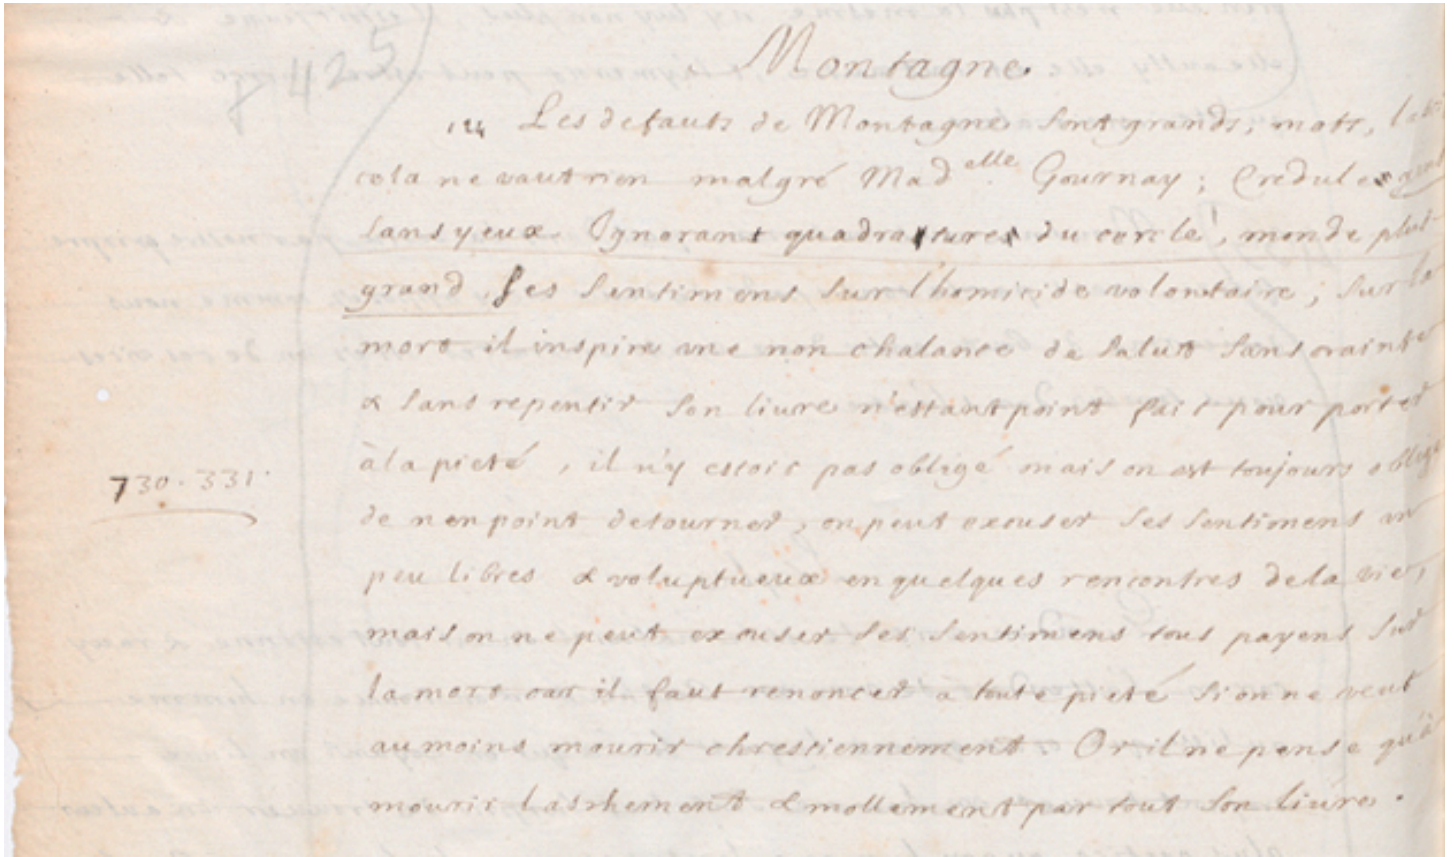 p 425
Montagne.
124 Les defauts de Montagne sont grands, mots,
cela ne vaut rien malgré Mad elle Gournay; Credule
sans yeux Ignorant quadratures du cercle, monde plus
grand Ses sentimens sur l'homicide volontaire; sur la
mort il inspire une nonchalance de salut sans crainte
& sans repentir son livre n'estant point fait pour porter
à la pieté, il n'y estoit pas obligé mais on est toujours obligé
730. 331.
de n'en point detourner, on peut excuser ses sentimens un
peu libres & voluptueux en quelques rencontres de la vie,
mais on ne peut excuser ses sentimens tous payens sur
la mort car il faut renoncer a toute pieté si on ne veut
au moins mourir chrestiennement. Or il ne pense qu'à
mourir laschement & mollement par tout son livre.